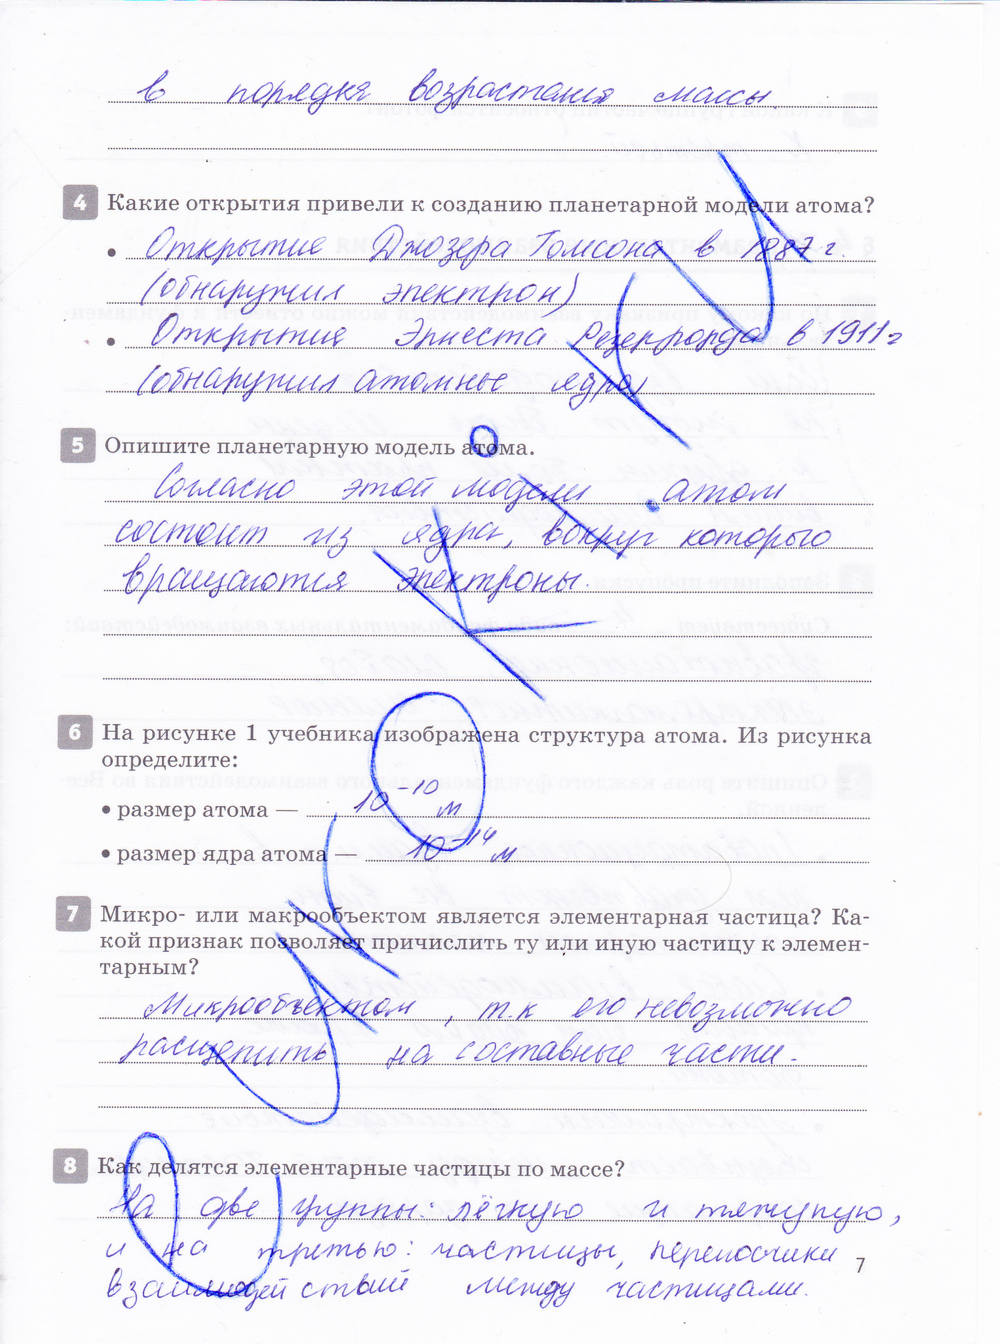 в порядке возрастания массы
4 Какие открытия привели к созданию планетарной модели атома?
• Открытие Джозера Томсона в 1887 г.
(обнаружил электрон)
• Открытия Эрнеста Резерфорда в 1911г
(обнаружил атомные ядра)
5 Опишите планетарную модель атома.
Согласно этой модели атом
состоит из ядра, вокруг которого
вращаются электроны.
6 На рисунке 1 учебника изображена структура атома. Из рисунка
определите:
• размер атома — 10⁻¹⁰ м
• размер ядра атома — 10⁻¹⁴ м
7 Микро- или макрообъектом является элементарная частица? Ка-
кой признак позволяет причислить ту или иную частицу к элемен-
тарным?
Микрообъектом, т.к его невозможно
расщепить на составные части.
8 Как делятся элементарные частицы по массе?
На две группы: лёгкую и тяжулую,
и на третью: частицы, переносчики
взаимодействий между частицами.
7